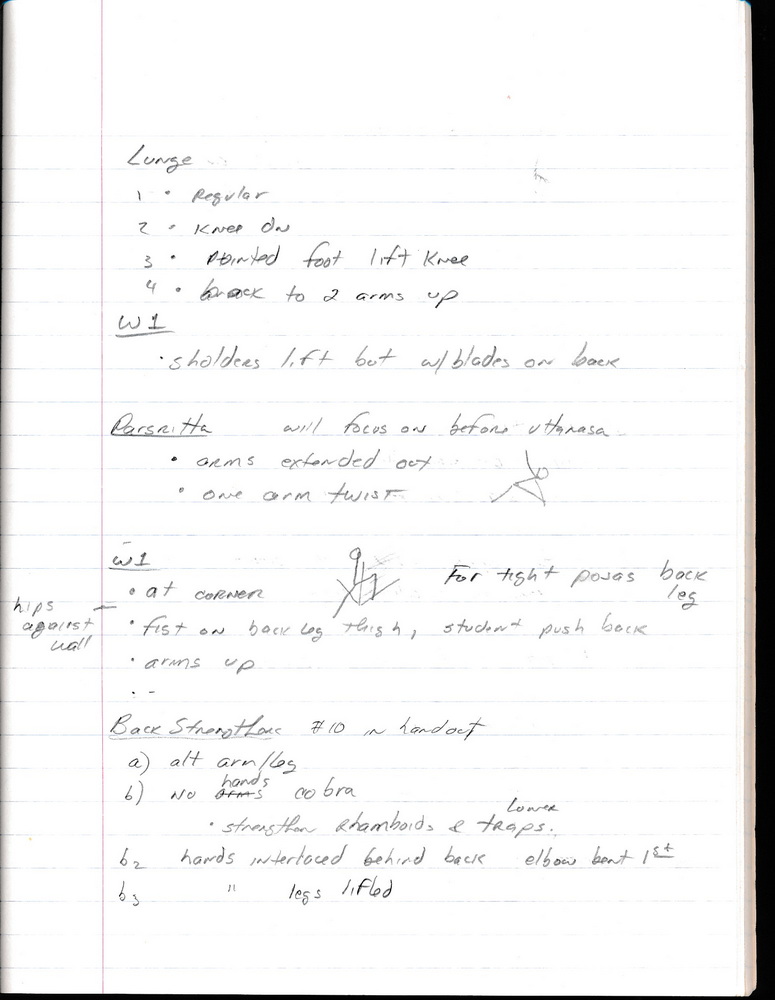 Lunge
1 • Regular
2 • Knee dn
3 • Pointed foot lift knee
4 • back to 2 arms up
W1
• sholders lift but w/ blades on back
Parsritta will focus on before uttanasa
• arms extended out
• one arm twist
W1
• at corner
For tight psoas back leg
hips against wall
• fist on back leg thigh, student push back
• arms up
• -
Back Strengthene #10 in handout
a) alt arm/leg
b) No arms hands cobra
• strengthen Rhamboids & Lower traps.
b2 hands interlaced behind back elbow bent 1st
b3 " legs lifled